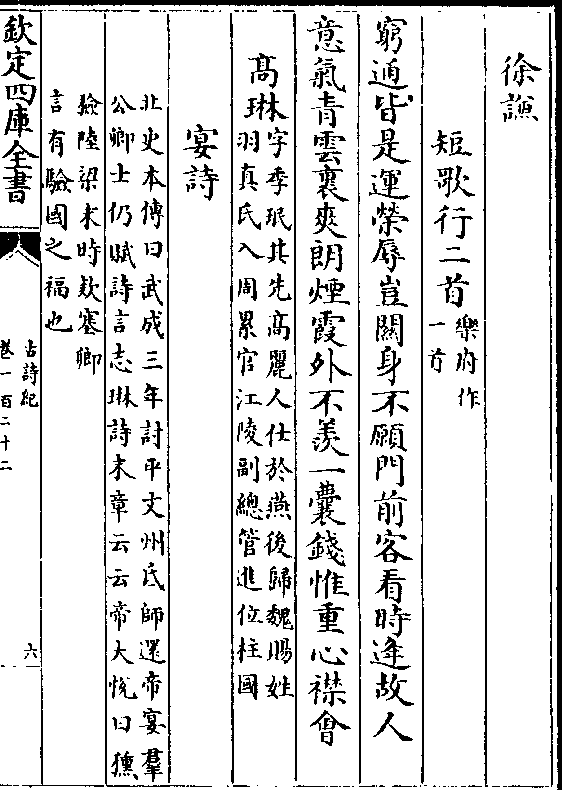 徐謙
短歌行二首樂府作一首
窮通皆是運榮辱豈關身不願門前客看時逢故人
意氣青雲裏爽朗煙霞外不羨一囊錢惟重心襟會
髙琳字季珉其先高麗人仕於燕後歸魏賜姓
羽真氏入周累官江陵副總管進位柱國
宴詩
北史本傳曰武成三年討平文州氐師還帝宴羣
公卿士仍賦詩言志琳詩末章云云帝大悅曰獯
獫陸梁未時欵塞卿
言有驗國之福也
欽定四庫全書
古詩紀
卷一百二十二
六